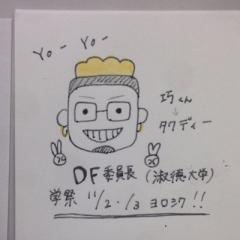 Yo - Yo -
巧くん
↓
タクディー
DF委員長 (淑徳大学)
学祭 11/2・/3 ヨロシク!!